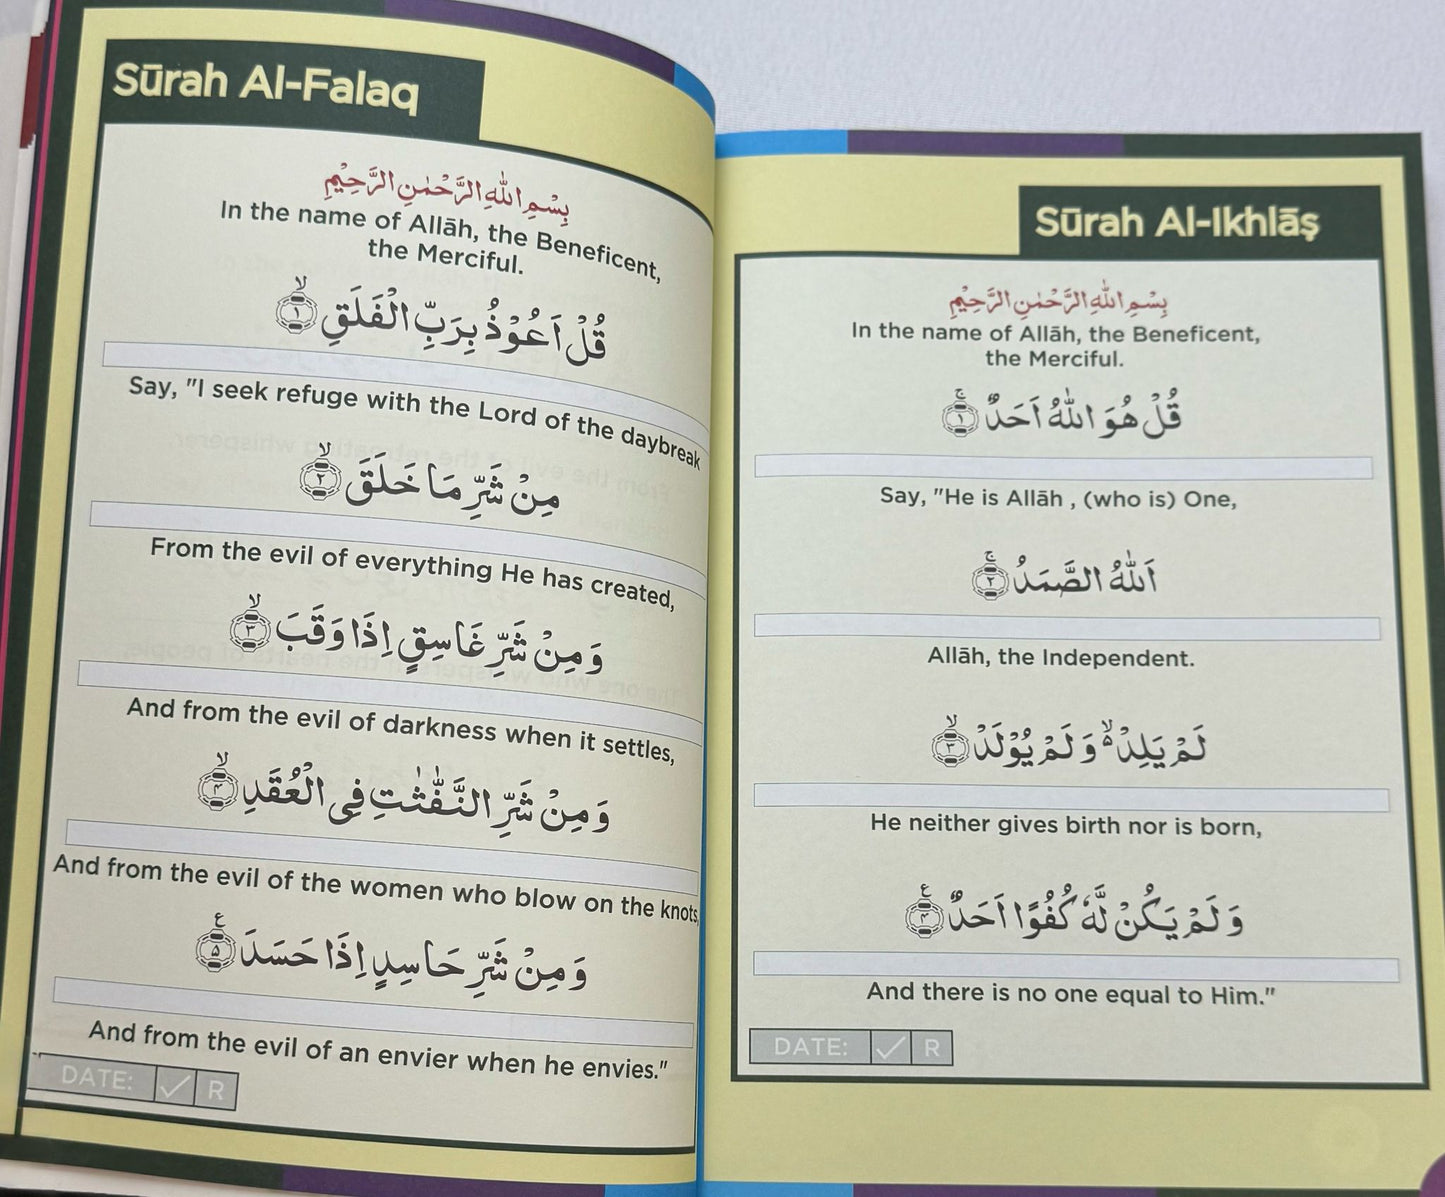 Sūrah Al-Falaq
بِسْمِ اللهِ الرَّحْمٰنِ الرَّحِيْمِ
In the name of Allāh, the Beneficent,
the Merciful.
قُلْ اَعُوْذُ بِرَبِّ الْفَلَقِ ۙ﴿۱﴾
Say, "I seek refuge with the Lord of the daybreak
مِنْ شَرِّ مَا خَلَقَ ۙ﴿۲﴾
From the evil of everything He has created,
وَ مِنْ شَرِّ غَاسِقٍ اِذَا وَقَبَ ۙ﴿۳﴾
And from the evil of darkness when it settles,
وَ مِنْ شَرِّ النَّفّٰثٰتِ فِى الْعُقَدِ ۙ﴿۴﴾
And from the evil of the women who blow on the knots,
وَ مِنْ شَرِّ حَاسِدٍ اِذَا حَسَدَ ﴿۵﴾ ع
And from the evil of an envier when he envies."
DATE: ✓ R
Sūrah Al-Ikhlāṣ
بِسْمِ اللهِ الرَّحْمٰنِ الرَّحِيْمِ
In the name of Allāh, the Beneficent,
the Merciful.
قُلْ هُوَ اللهُ اَحَدٌ ۚ﴿۱﴾
Say, "He is Allāh , (who is) One,
اَللهُ الصَّمَدُ ۚ﴿۲﴾
Allāh, the Independent.
لَمْ يَلِدْ ۙ۬ وَ لَمْ يُوْلَدْ ۙ﴿۳﴾
He neither gives birth nor is born,
وَ لَمْ يَكُنْ لَّهٗ كُفُوًا اَحَدٌ ﴿۴﴾ ع
And there is no one equal to Him."
DATE: ✓ R